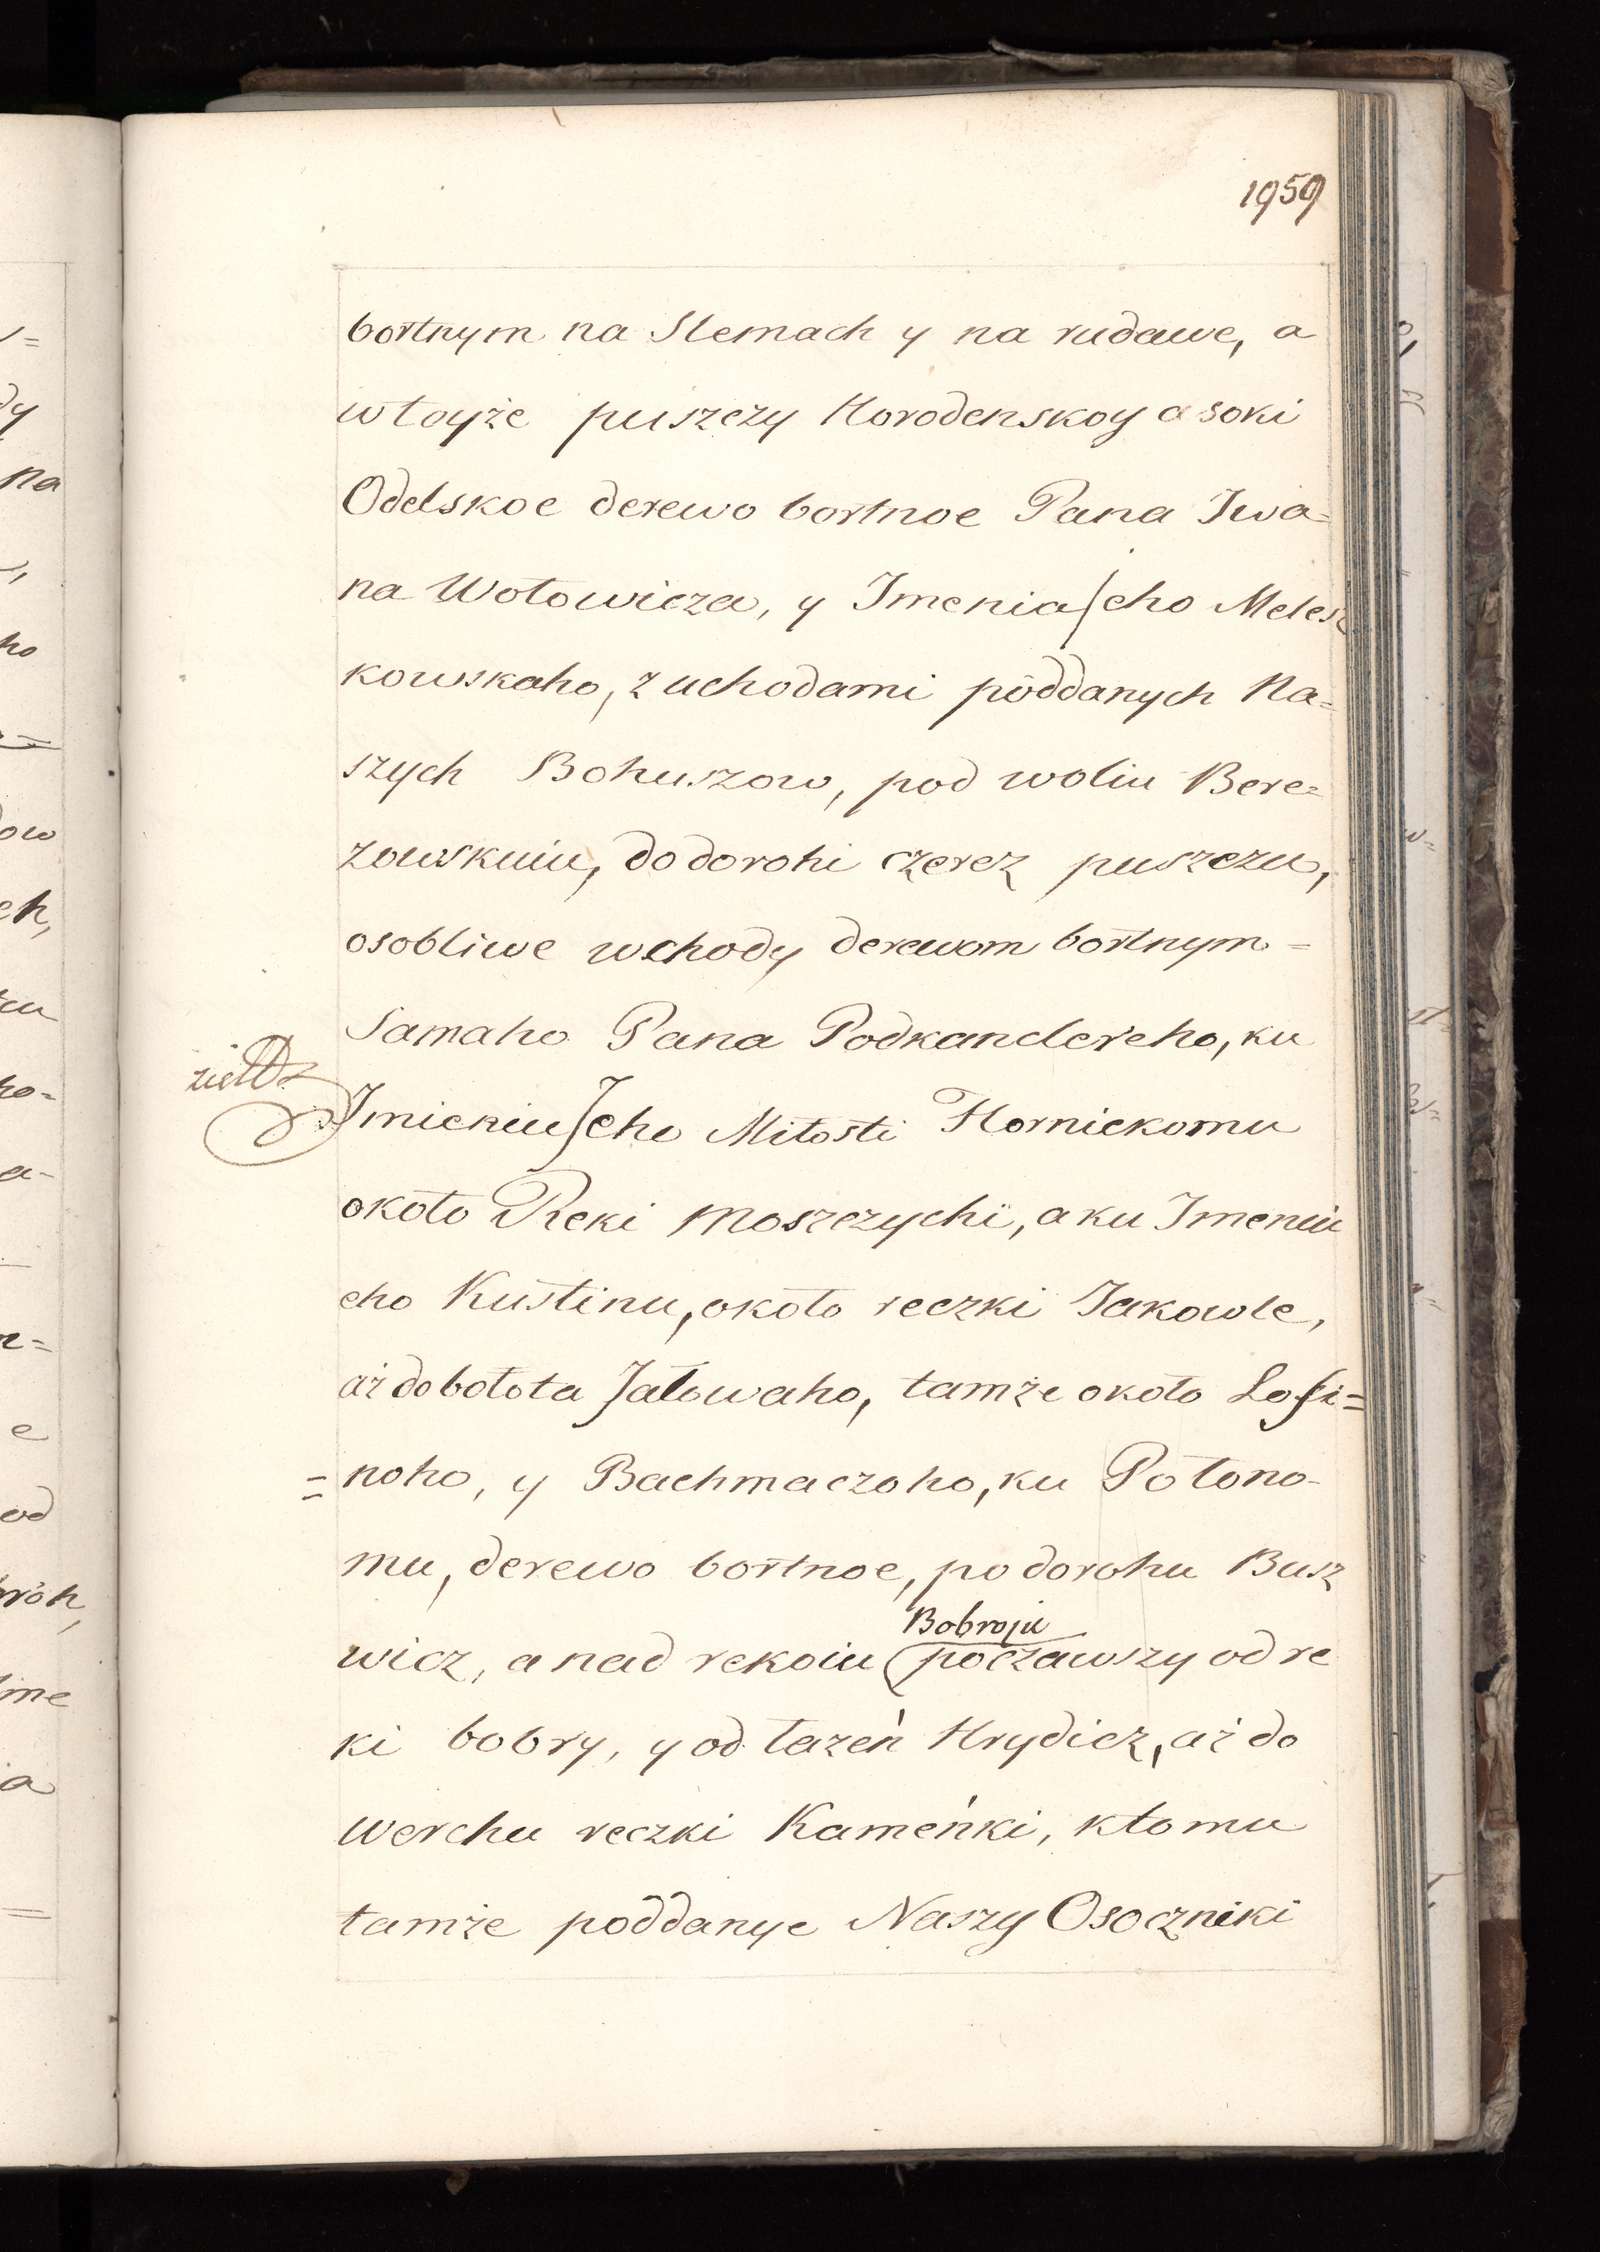 1959
bortnym na Slemach y na rudawe, a
wtoyże puszczy Horodenskoy a soki
Odelskoe derewo bortnoe Pana Iwa=
na Wołowicza, y Imenia Jeho Melesz
kowskaho, z uchodami poddanych Na=
szych Bohuszow, pod woliu Bere=
zowskuiu, do dorohi czerez puszczu,
osobliwe wchody derewom bortnym=
Samaho Pana Podkanclereho, ku
Imieniu Jeho Miłosti Hornickomu
około Reki Moszczychi, a ku Imeniu
eho Kustinu, około reczki Jakowle,
aż do bołota Jałowaho, tamże około Losi=
=noho, y Bachmaczoho, ku Połono-
mu, derewo bortnoe, po dorohu Busz
Bobroju
wicz, a nad rekoiu poczawszy od re
ki bobry, y od łazeń Hrydicz, aż do
werchu reczki Kameńki, ktomu
tamże poddanye Naszy Osoczniki